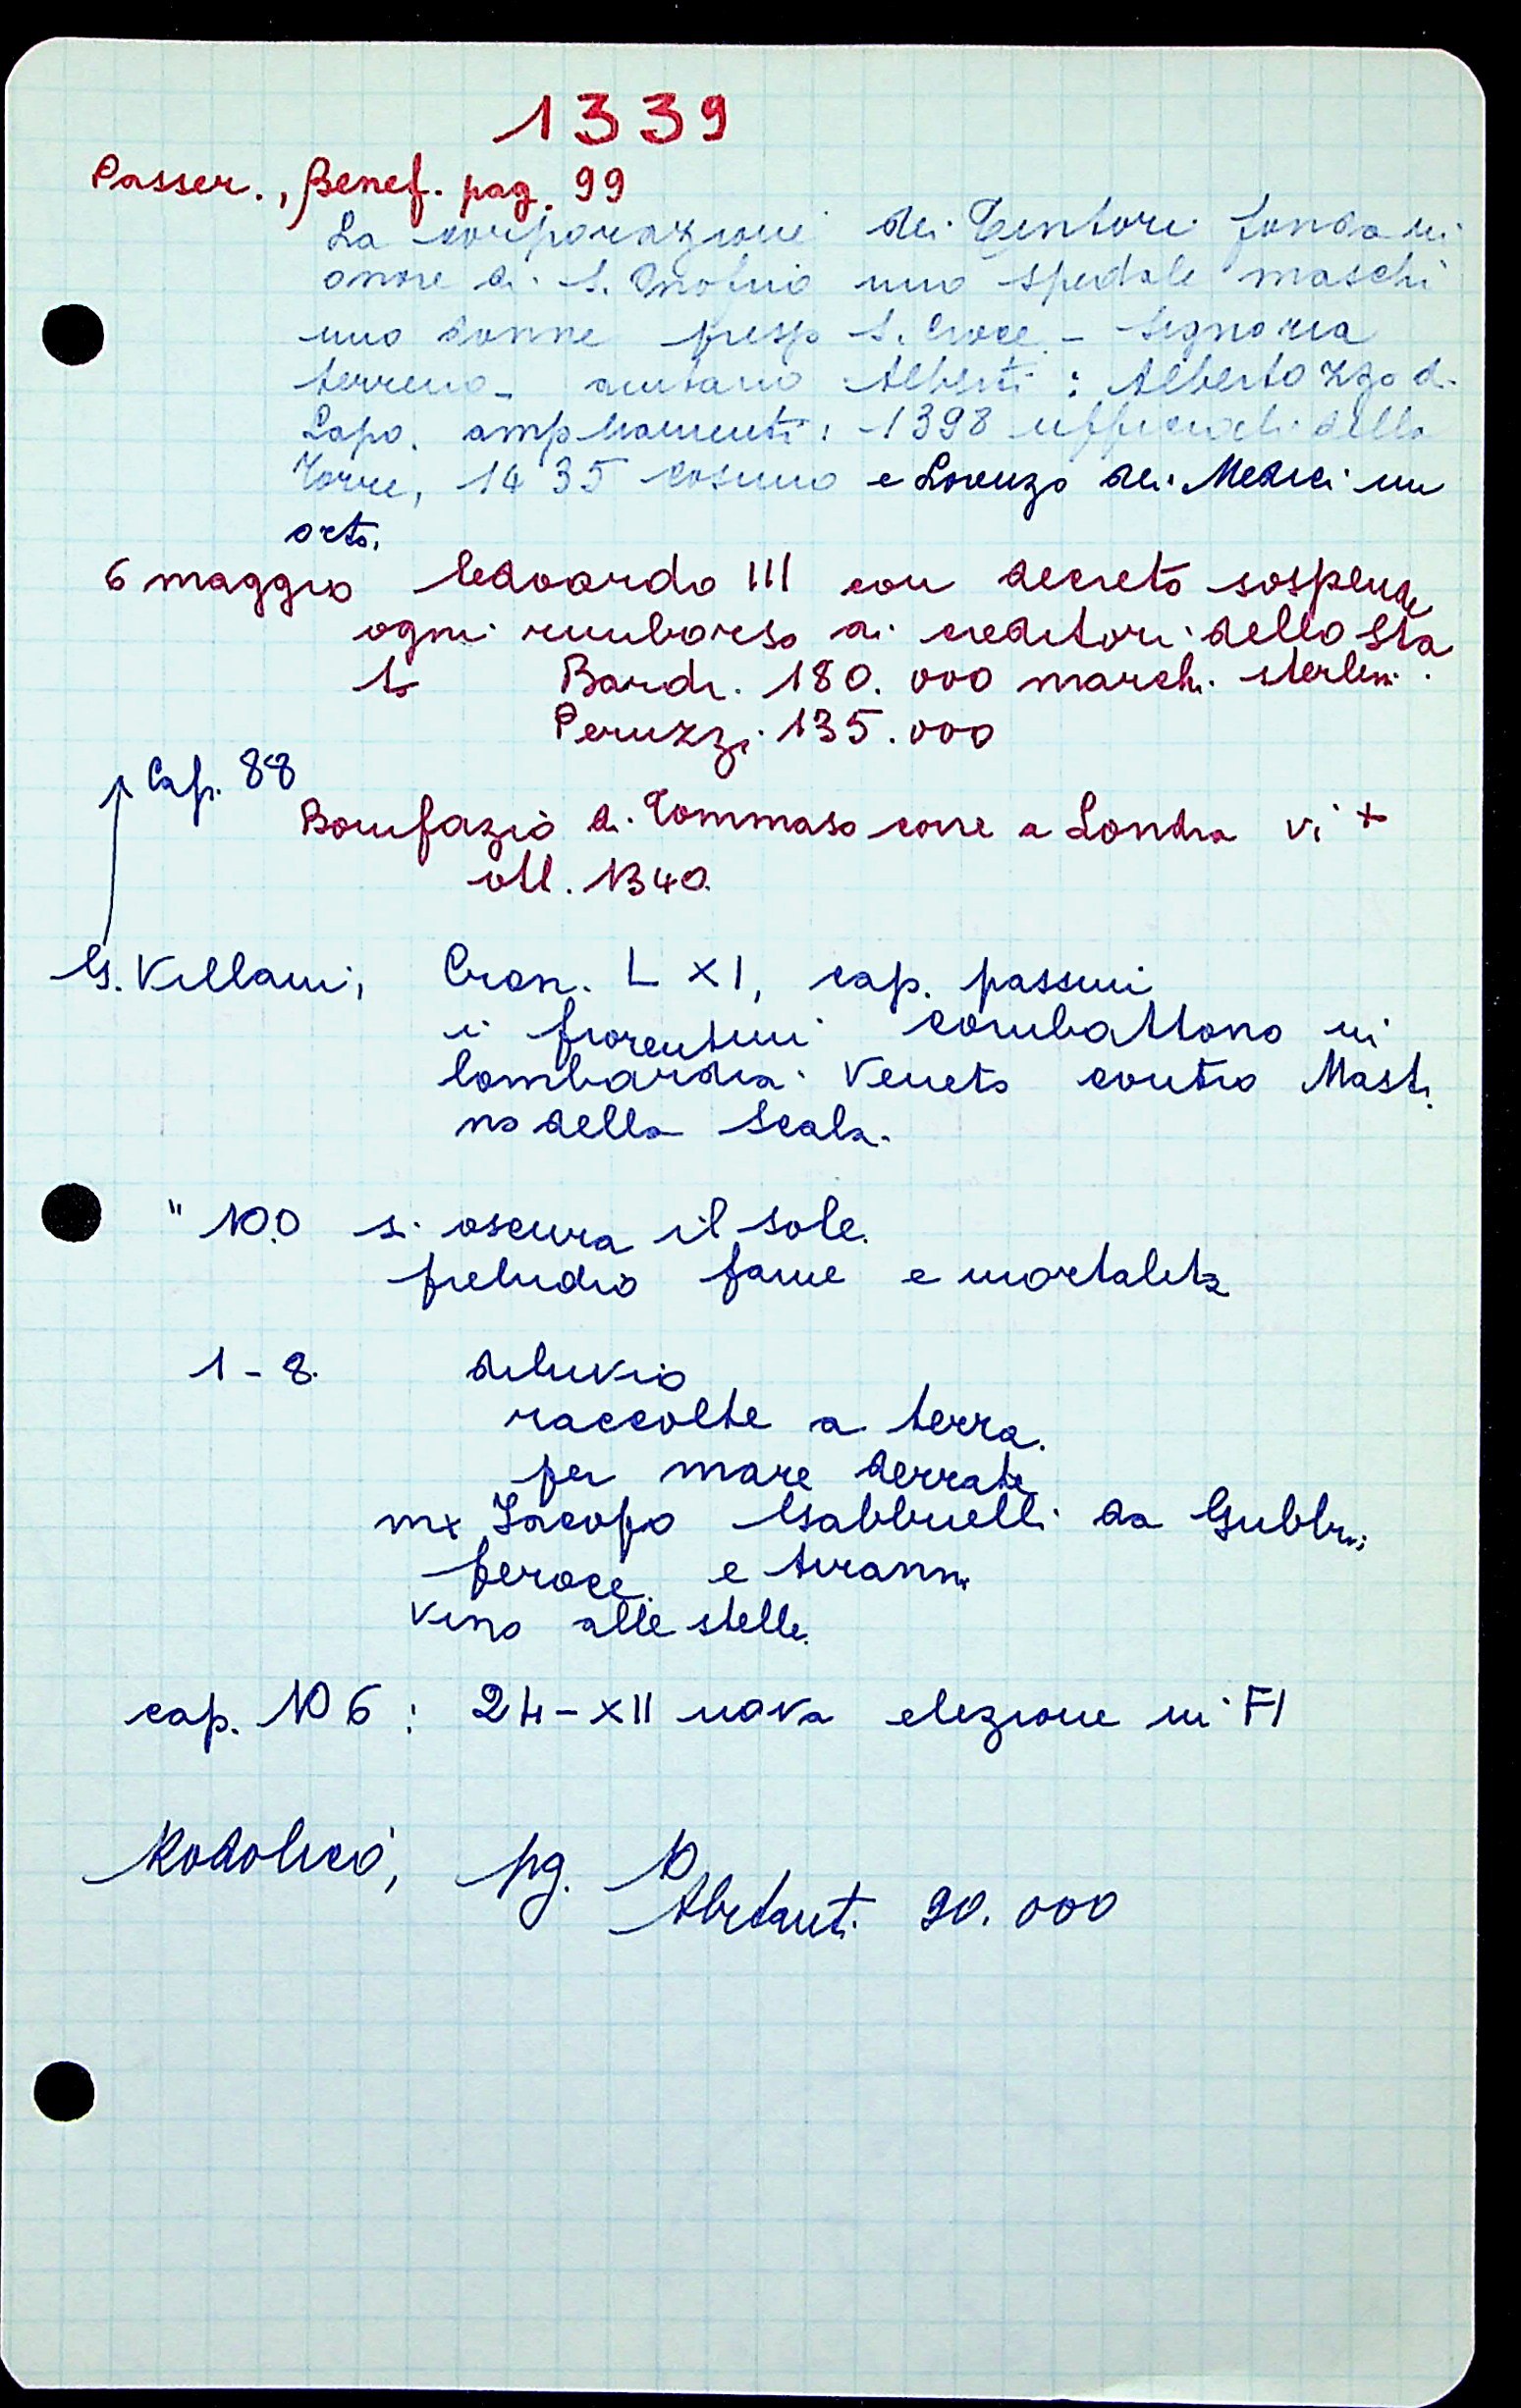 1339
Passer., Benef. pag. 99
La corporazione dei Tentori fonda in
onore di S. Onofrio uno spedale maschi
uno donne presso S. Croce - Signoria
terreno - aiutano Alberti: Albertozzo di
Lapo. ampliamenti: 1398 ufficiali della
Torre, 1435 Cosimo e Lorenzo dei Medici un
orto.
6 maggio Edoardo III con decreto sospende
ogni rimborso ai creditori dello Sta
to Bardi. 180.000 marchi sterlini.
Peruzzi 135.000
Cap. 88
Bonifazio di Tommaso corre a Londra vi +
ott. 1340.
G. Villani, Cron. L XI, cap. passim
i fiorentini combattono in
lombardia. Veneto contro Masti
no della Scala.
" 100 si oscura il sole.
preludio fame e mortalità
1-8. diluvio
raccolte a terra.
per mare derrate
mx Jacopo Gabbrielli da Gubbio,
feroce e tiranno
vino alle stelle.
cap. 106: 24-XII nova elezione in FI
Rodolico, pg. 10
Abitanti 90.000